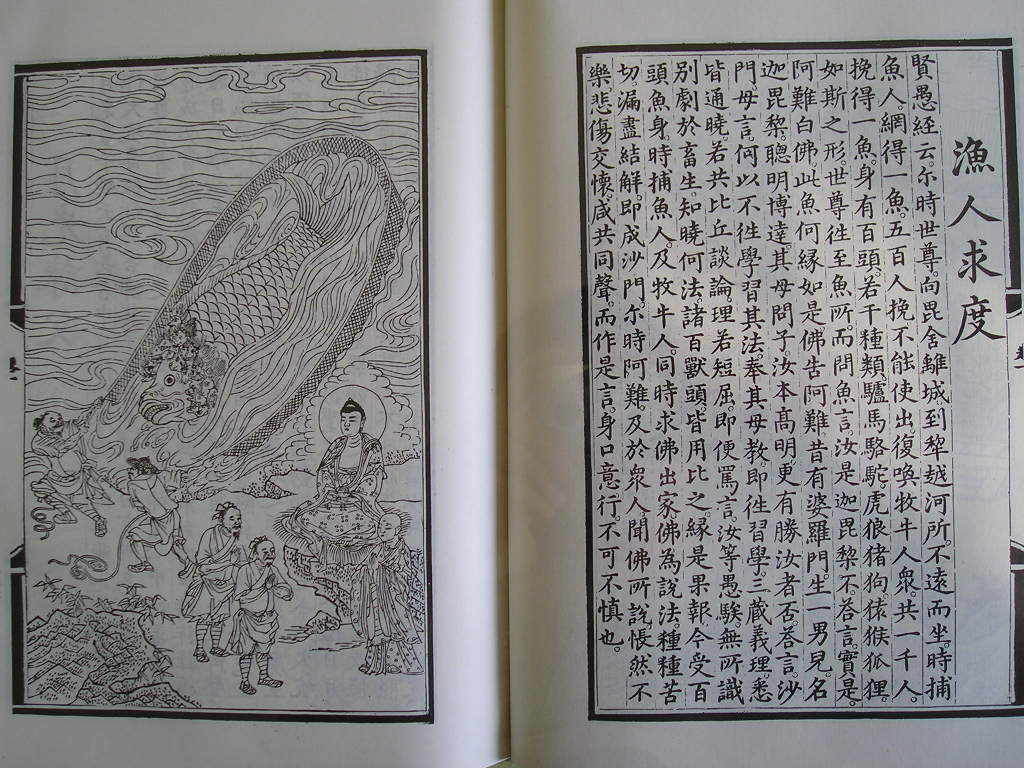 漁人求度
賢愚經云。尔時世尊。向毘舍離城到犂越河所。不遠而坐。時捕
魚人。網得一魚。五百人挽不能使出。復喚牧牛人衆。共一千人。
挽得一魚。身有百頭。若干種類。驢馬駱駝。虎狼猪狗。猿猴狐狸。
如斯之形。世尊徃至魚所。而問魚言。汝是迦毘黎不。荅言。實是。
阿難白佛。此魚何縁如是。佛告阿難。昔有婆羅門。生一男兒。名
迦毘黎。聰明博達。其母問子。汝本高明。更有勝汝者否。荅言。沙
門。母言。何以不徃學習其法。奉其母教。即徃習學。三藏義理。悉
皆通曉。若共比丘談論。理若短屈。即便罵言。汝等愚騃。無所識
別。劇於畜生。知曉何法。諸百獸頭。皆用比之。縁是果報。今受百
頭魚身。時捕魚人。及牧牛人。同時求佛出家。佛為說法。種種苦
切。漏盡結解。即成沙門。尔時阿難。及於衆人聞佛所說。悵然不
樂。悲傷交懷。咸共同聲。而作是言。身口意行。不可不慎也。